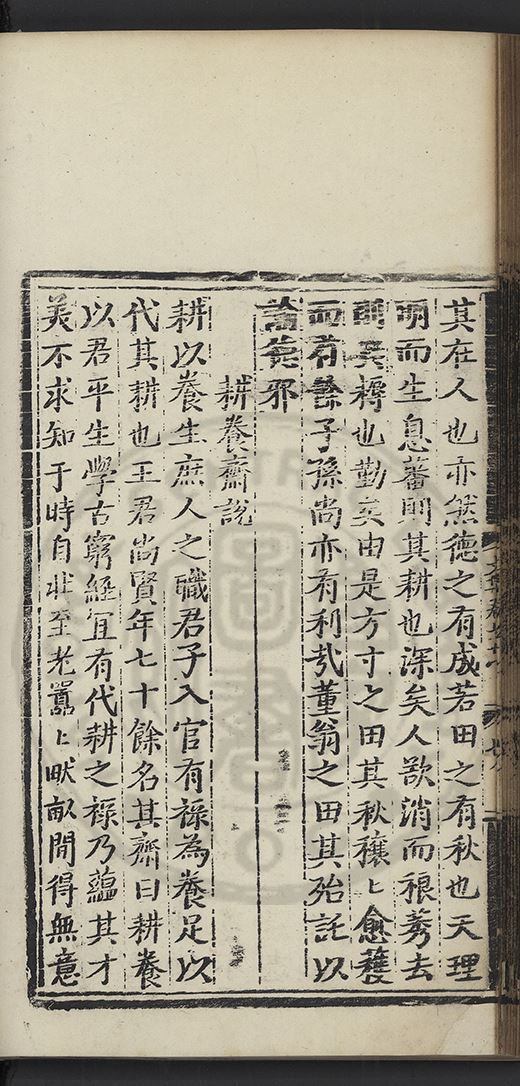 其在人也亦然德之有成若田之有秋也天理
明而生息蕃則其耕也深矣人欲消而稂莠去
則其耨也勤矣由是方寸之田其秋穰〻愈穫
而有餘子孫尚亦有利㢤董翁之田其殆託以
論是邪
耕養齋説
耕以養生庶人之職君子入官有祿為養足以
代其耕也王君尚賢年七十餘名其齋曰耕養
以君平生學古窮經宜有代耕之祿乃蘊其才
美不求知于時自壯至老嚚〻畎畝間得無意